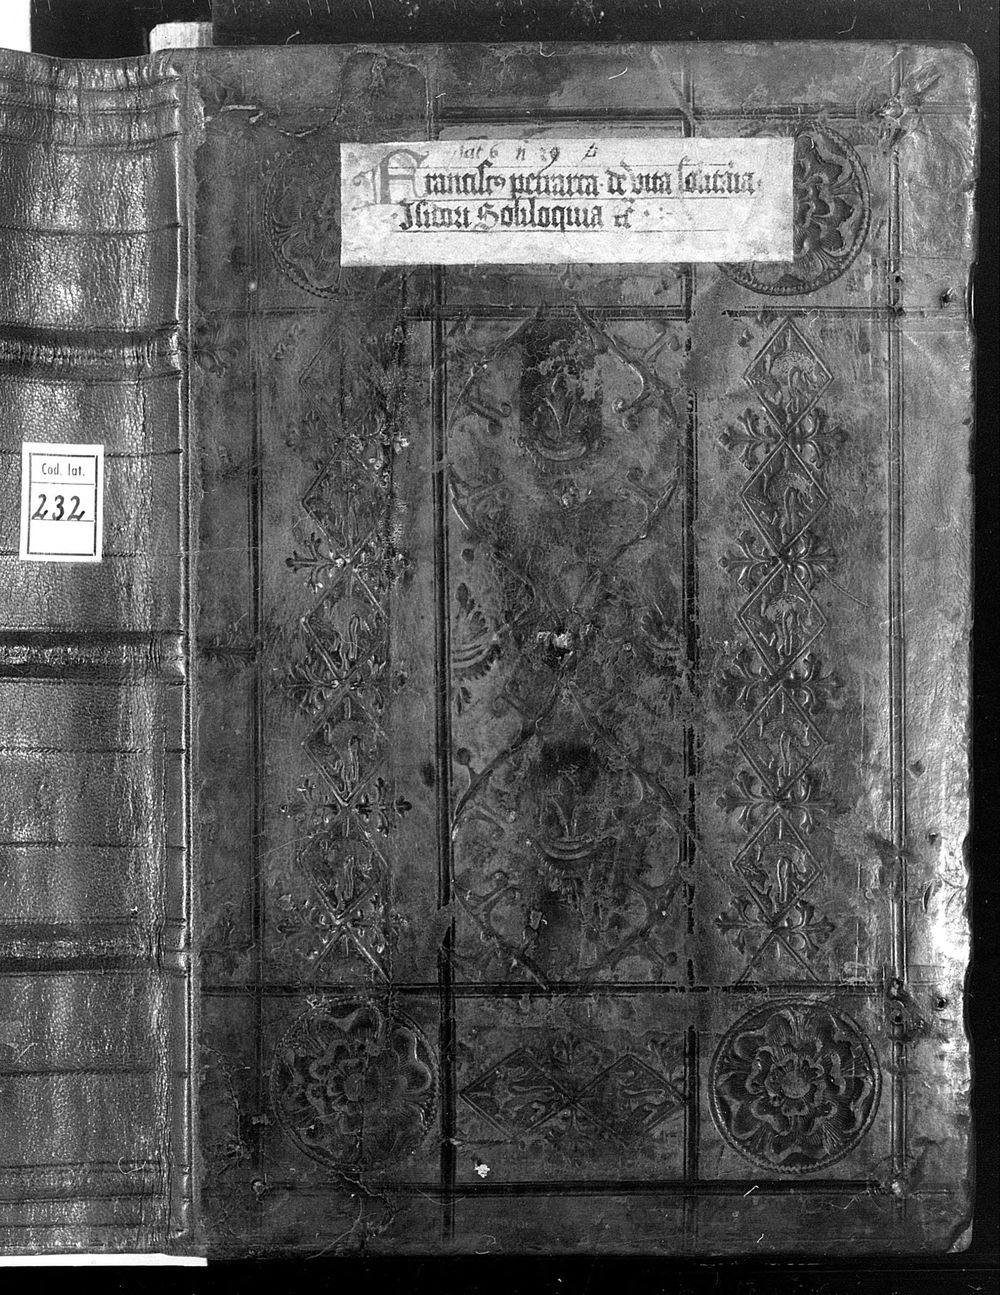 Franciscꝰ petrarca de vita solitaria.
Isidori Soliloquia ⁊c̄
Cod. lat.
232